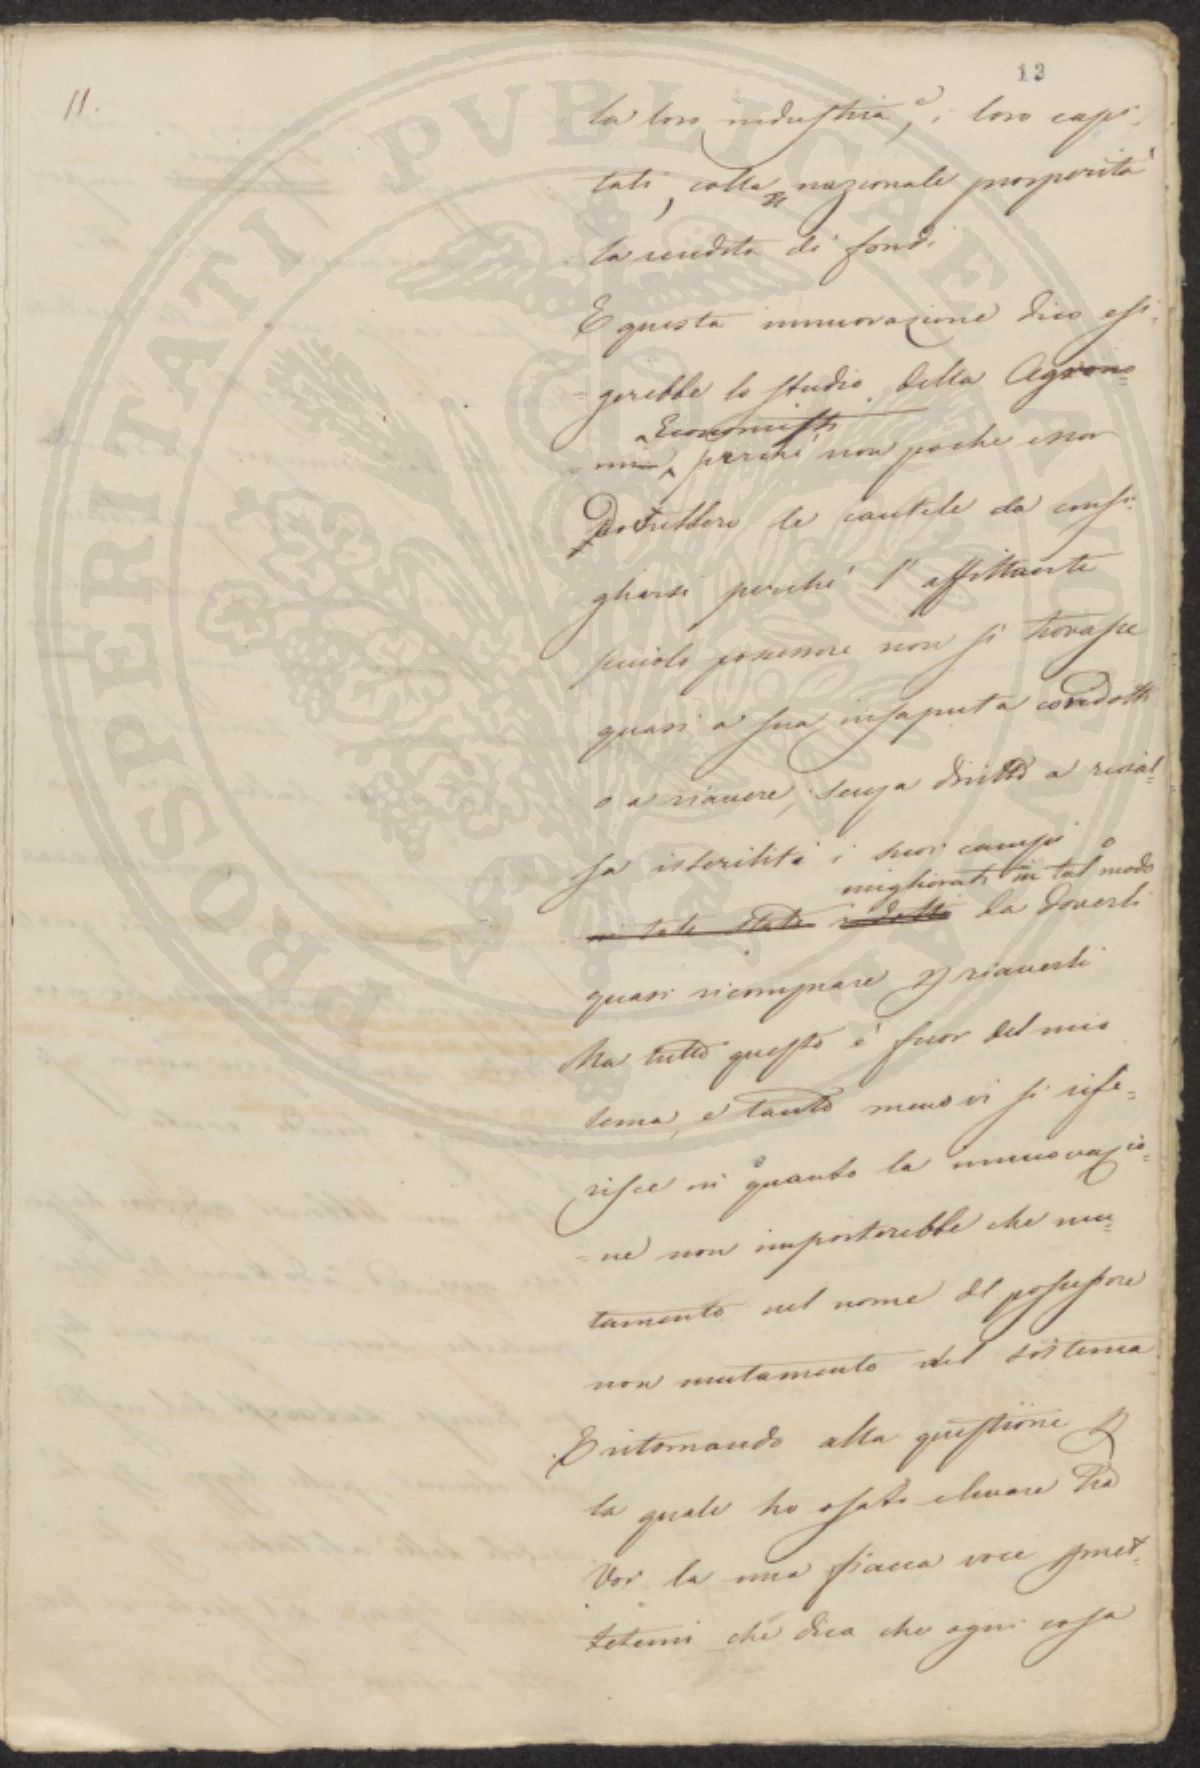 13
11.
la loro industria, e i loro capi-
tali, colla nazionale prosperità
la rendita di fondi
E questa innovazione dico esi-
gerebbe lo studio della Agrono-
mia Economisti perché non poche esser
Dovrebbero le cautele da consi-
gliarsi perché l'affittante
piccolo possessore non si trovasse
quasi a sua insaputa condotto
o a riavere, senza diritto a rival-
sa isteriliti i suoi campi o
migliorati in tal modo
in tale stato ridotti da doverli
quasi ricomprare p riaverli
Ma tutto questo è fuor del mio
tema, e tanto meno vi si rife-
risce in quanto la innovazio-
ne non importerebbe che mu-
tamento nel nome del possessore
non mutamento del sistema
E ritornando alla questione p
la quale ho osato elevare tra
Voi la mia fiacca voce pmet-
tetemi che dica che ogni cosa
PROSPERITATI PVBLICAE AVGENDAE